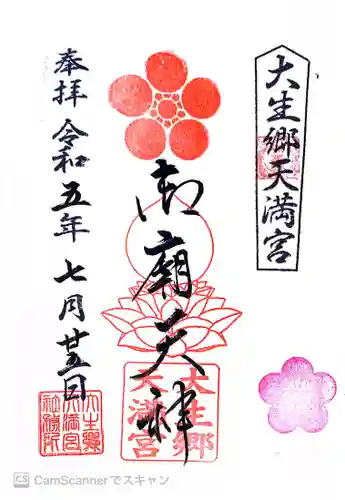 大生郷天満宮
御廟天神
奉拝
令和五年七月廿五日
大生郷
天満宮
大生郷
天満宮
社務所
CS CamScannerでスキャン